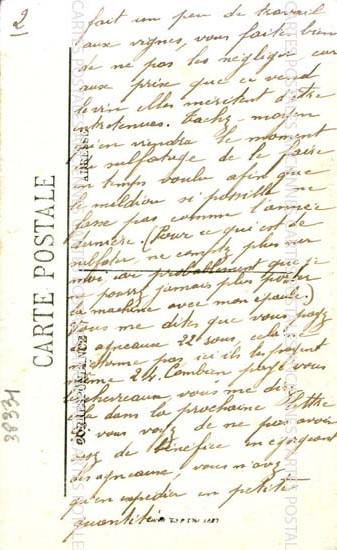 2
fait un peu de travail
aux vignes, vous faites bien
de ne pas les négliger car
aux prix que ce vend
le vin elles méritent d'être
entretenues. Tachez moyen
quand viendra le moment
du sulfatage de le faire
en temps voulu afin que
le meldiou si possible ne
fasse pas comme l'année
dernière. (Pour ce qui est de
sulfater ne comptez plus sur
moi, car probablement que je
ne pourrai jamais plus porter
la machine avec mon épaule.)
Vous me dites que vous payez
les agneaux 22 sous, cela ne
m'étonne pas ici ils les payent
même 24. Combien payez vous
les chevreaux, vous me direz
cela dans la prochaine lettre
si vous voyez de ne pas avoir
assez de bénéfice en égorgeant
des agneaux, vous n'avez
qu'en expédier en petite
quantité.
CARTE POSTALE
CORRESPONDANCE
ADRESSE
38331